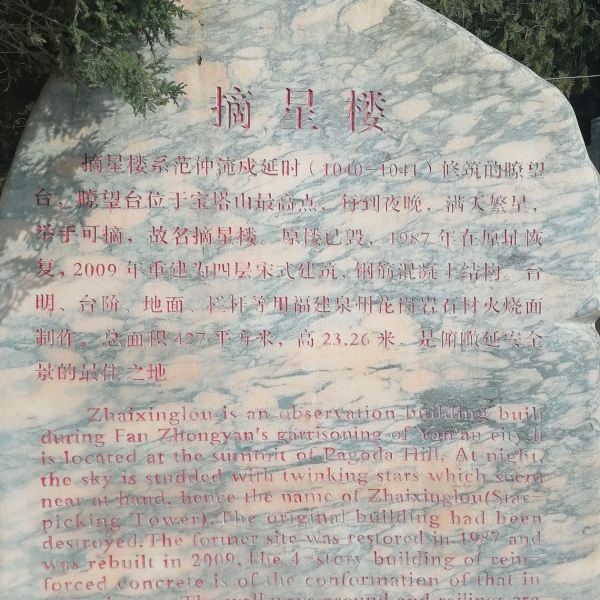 摘星楼
摘星楼系范仲淹戍延时（1040-1041）修筑的瞭望
台，瞭望台位于宝塔山最高点，每到夜晚，满天繁星，
举手可摘，故名摘星楼。原楼已毁，1987年在原址恢
复，2009年重建为四层宋式建筑，钢筋混凝土结构。台
明、台阶、地面、栏杆等用福建泉州花岗岩石材火烧面
制作。总面积427平方米，高23.26米，是俯瞰延安全
景的最佳之地
Zhaixinglou is an observation building built
during Fan Zhongyan's garrisoning of Yan'an city.It
is located at the summit of Pagoda Hill. At night,
the sky is studded with twinking stars which seem
near at hand, hence the name of Zhaixinglou(Star-
picking Tower).The original building had been
destroyed.The former site was restored in 1987 and
was rebuilt in 2009. The 4-story building of rein-
forced concrete is of the conformation of that in
ground and railings are